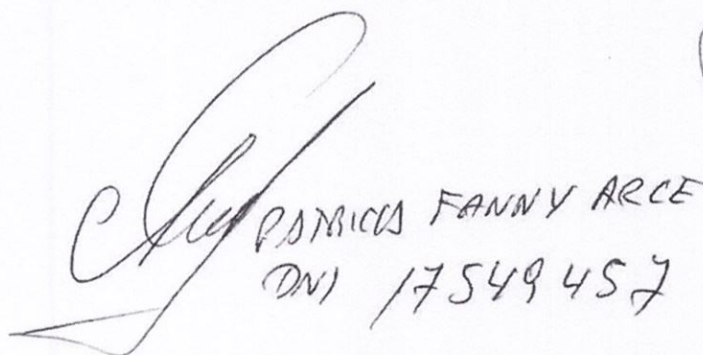 PATRICIA FANNY ARCE
DNI 17549457